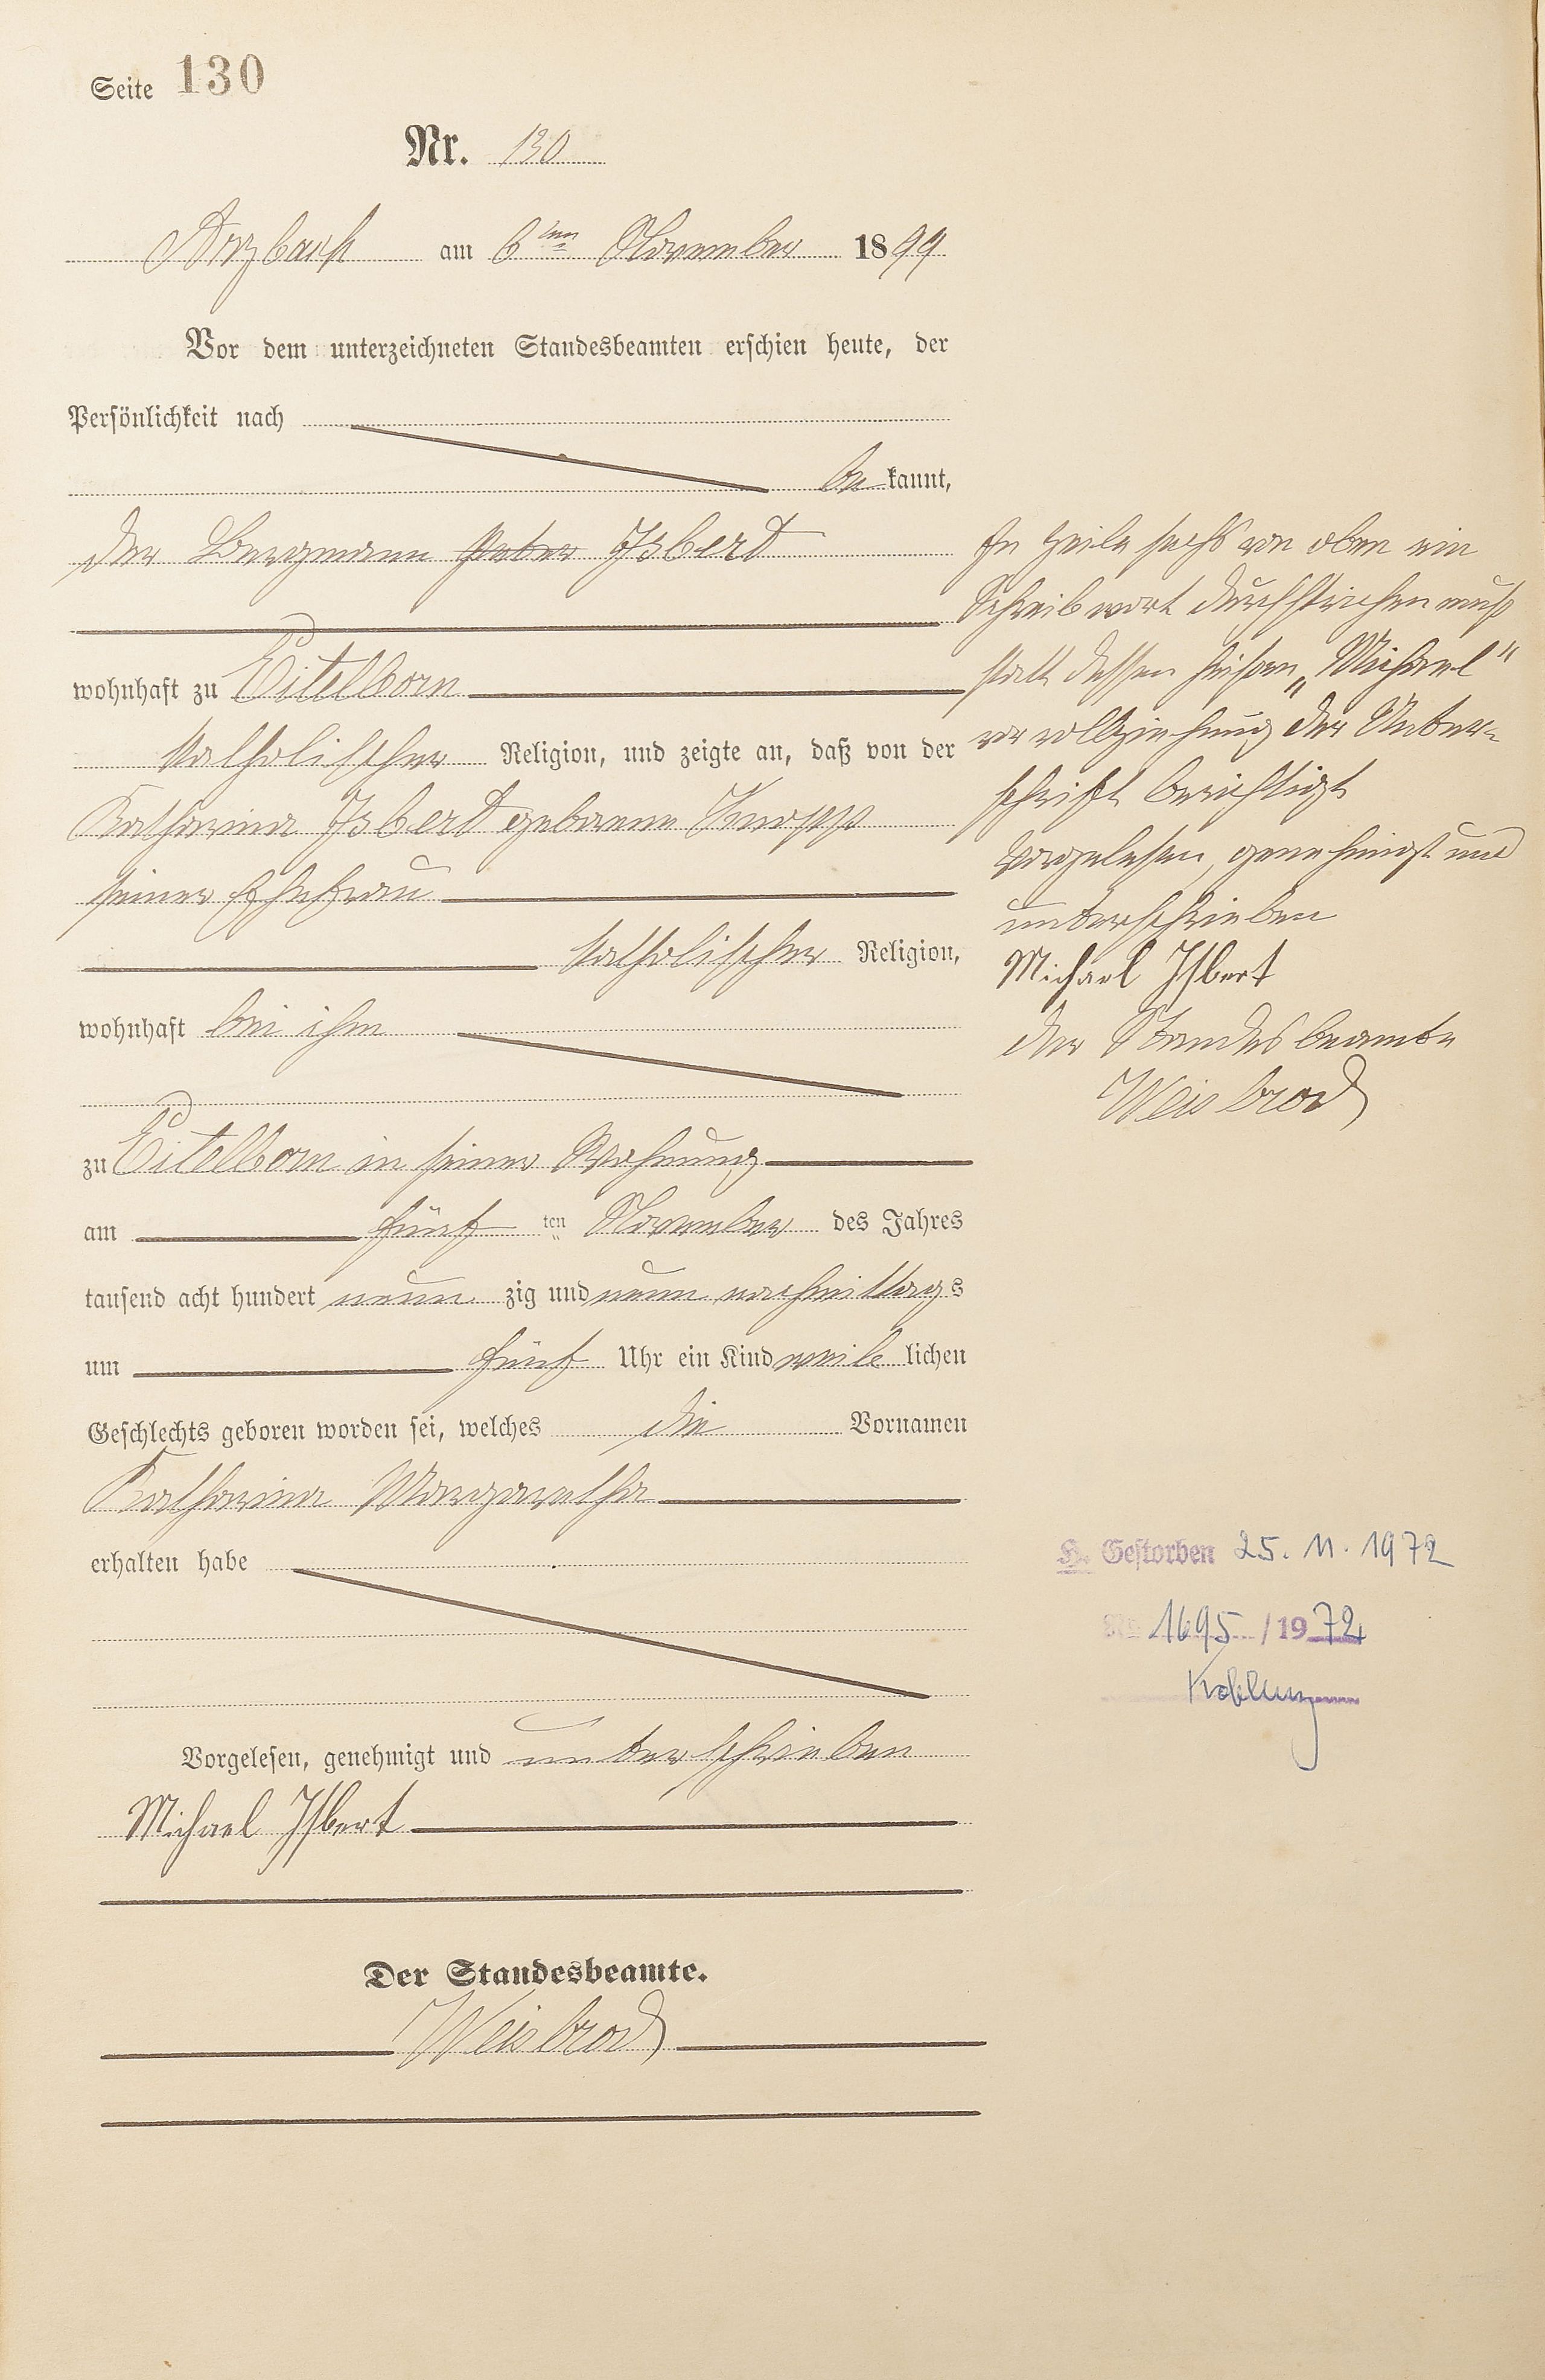 Seite 130
Nr. 130
Arzbach am 6ten November 1899
Vor dem unterzeichneten Standesbeamten erschien heute, der
Persönlichkeit nach
be kannt,
der Bergmann Peter Isbert
wohnhaft zu Eitelborn
katholischer Religion, und zeigte an, daß von der
Katharina Isbert geborene Knopp
seiner Ehefrau
katholischer Religion,
wohnhaft bei ihm
zu Eitelborn in seiner Wohnung
am fünf ten November des Jahres
tausend acht hundert neun zig und neun nachmittags
um fünf Uhr ein Kind weib lichen
Geschlechts geboren worden sei, welches die Vornamen
Katharina Margaretha
erhalten habe
Vorgelesen, genehmigt und unterschrieben
Michael Isbert
Der Standesbeamte.
Weisbrod
In Zeile sechs von oben ein
Schreibwort durchstrichen muß
statt dessen heißen „Michael"
vor vollziehung der Unter-
schrift berichtigt
Vorgelesen, genehmigt und
unterschrieben
Michael Isbert
der Standesbeamte
Weisbrod
H. Gestorben 25. 11. 1972
Nr. 1695 / 1972
Koblenz